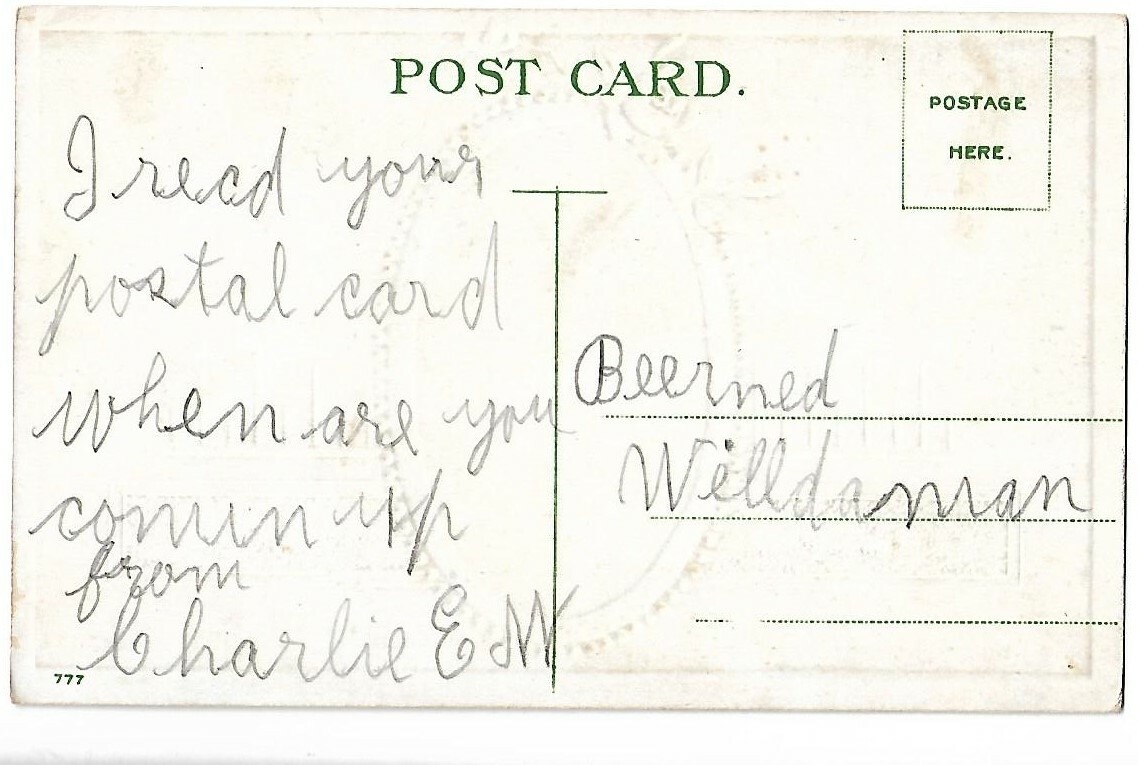 POST CARD.
POSTAGE
HERE.
I recd your
postal card
when are you
comin up
from
Charlie E W
Beerned
Willdaman
777